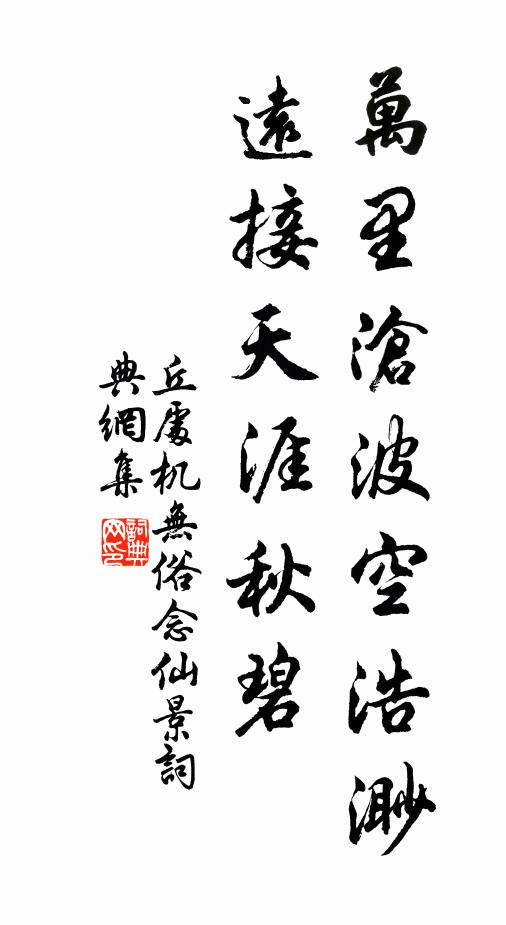 萬里滄波空浩渺
遠接天涯秋碧
丘處机無俗念仙景詞
典網集
詞典网印